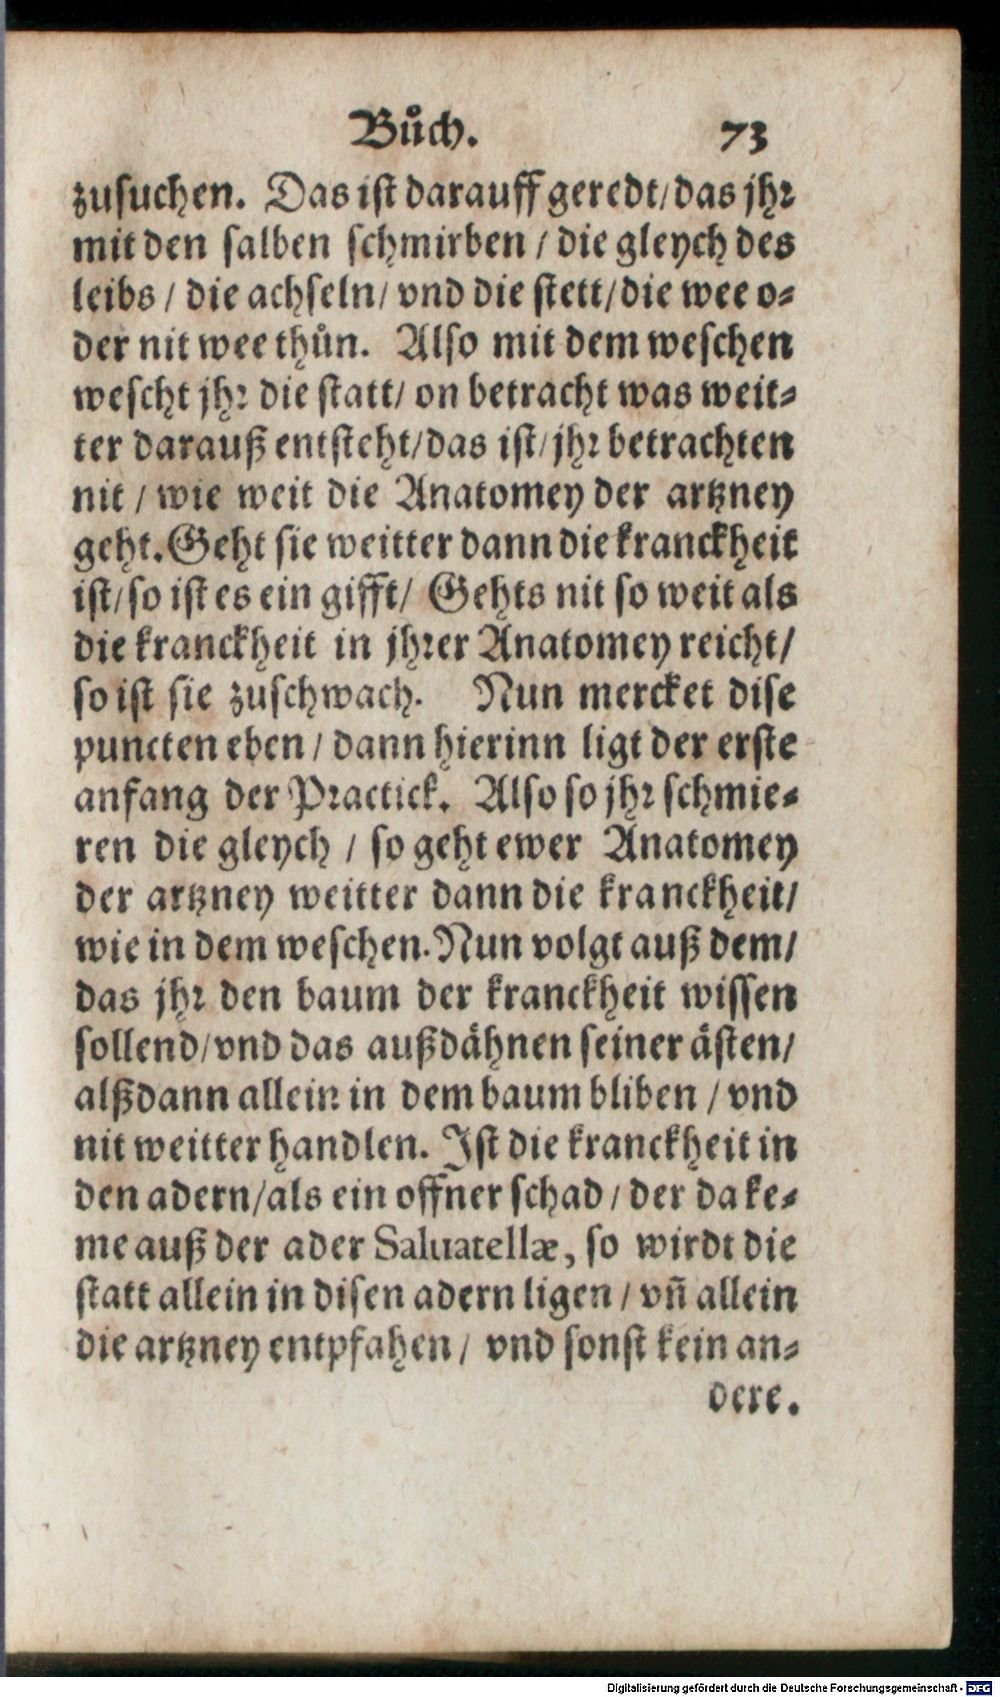 Bůch. 73
zusuchen. Das ist darauff geredt/das jhr
mit den salben schmirben / die gleych des
leibs / die achseln/ vnd die stett/die wee o-
der nit wee thůn. Also mit dem weschen
wescht jhr die statt/ on betracht was weit-
ter darauß entsteht/das ist/jhr betrachten
nit / wie weit die Anatomey der artzney
geht. Geht sie weitter dann die kranckheit
ist/so ist es ein gifft/ Gehts nit so weit als
die kranckheit in jhrer Anatomey reicht/
so ist sie zuschwach. Nun mercket dise
puncten eben / dann hierinn ligt der erste
anfang der Practick. Also so jhr schmie-
ren die gleych / so geht ewer Anatomey
der artzney weitter dann die kranckheit/
wie in dem weschen. Nun volgt auß dem/
das jhr den baum der kranckheit wissen
sollend/vnd das außdähnen seiner ästen/
alßdann allein in dem baum bliben / vnd
nit weitter handlen. Ist die kranckheit in
den adern/als ein offner schad / der da ke-
me auß der ader Saluatellæ, so wirdt die
statt allein in disen adern ligen / vñ allein
die artzney entpfahen / vnd sonst kein an-
dere.
Digitalisierung gefördert durch die Deutsche Forschungsgemeinschaft - DFG